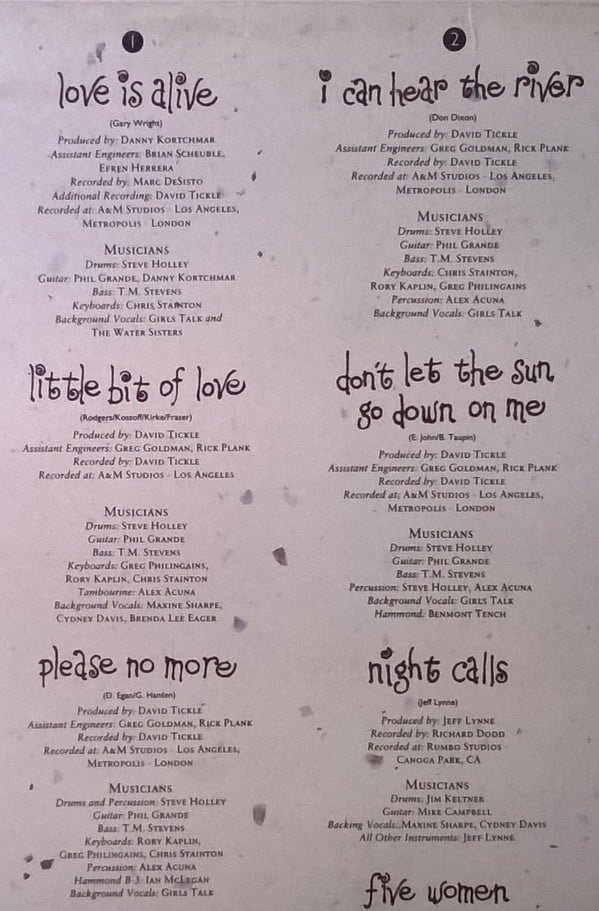 1
love is alive
(Gary Wright)
Produced by: Danny Kortchmar
Assistant Engineers: Brian Scheuble,
Efren Herrera
Recorded by: Marc DeSisto
Additional Recording: David Tickle
Recorded at: A&M Studios - Los Angeles,
Metropolis - London
Musicians
Drums: Steve Holley
Guitar: Phil Grande, Danny Kortchmar
Bass: T.M. Stevens
Keyboards: Chris Stainton
Background Vocals: Girls Talk and
The Water Sisters
little bit of love
(Rodgers/Kossoff/Kirke/Fraser)
Produced by: David Tickle
Assistant Engineers: Greg Goldman, Rick Plank
Recorded by: David Tickle
Recorded at: A&M Studios - Los Angeles
Musicians
Drums: Steve Holley
Guitar: Phil Grande
Bass: T.M. Stevens
Keyboards: Greg Philingains,
Rory Kaplin, Chris Stainton
Tambourine: Alex Acuna
Background Vocals: Maxine Sharpe,
Cydney Davis, Brenda Lee Eager
please no more
(D. Egan/G. Hanten)
Produced by: David Tickle
Assistant Engineers: Greg Goldman, Rick Plank
Recorded by: David Tickle
Recorded at: A&M Studios - Los Angeles,
Metropolis - London
Musicians
Drums and Percussion: Steve Holley
Guitar: Phil Grande
Bass: T.M. Stevens
Keyboards: Rory Kaplin,
Greg Philingains, Chris Stainton
Percussion: Alex Acuna
Hammond B-3: Ian McLegan
Background Vocals: Girls Talk
2
i can hear the river
(Don Dixon)
Produced by: David Tickle
Assistant Engineers: Greg Goldman, Rick Plank
Recorded by: David Tickle
Recorded at: A&M Studios - Los Angeles,
Metropolis - London
Musicians
Drums: Steve Holley
Guitar: Phil Grande
Bass: T.M. Stevens
Keyboards: Chris Stainton,
Rory Kaplin, Greg Philingains
Percussion: Alex Acuna
Background Vocals: Girls Talk
don't let the sun
go down on me
(E. John/B. Taupin)
Produced by: David Tickle
Assistant Engineers: Greg Goldman, Rick Plank
Recorded by: David Tickle
Recorded at: A&M Studios - Los Angeles,
Metropolis - London
Musicians
Drums: Steve Holley
Guitar: Phil Grande
Bass: T.M. Stevens
Percussion: Steve Holley, Alex Acuna
Background Vocals: Girls Talk
Hammond: Benmont Tench
night calls
(Jeff Lynne)
Produced by: Jeff Lynne
Recorded by: Richard Dodd
Recorded at: Rumbo Studios -
Canoga Park, CA
Musicians
Drums: Jim Keltner
Guitar: Mike Campbell
Backing Vocals: Maxine Sharpe, Cydney Davis
All Other Instruments: Jeff Lynne
five women